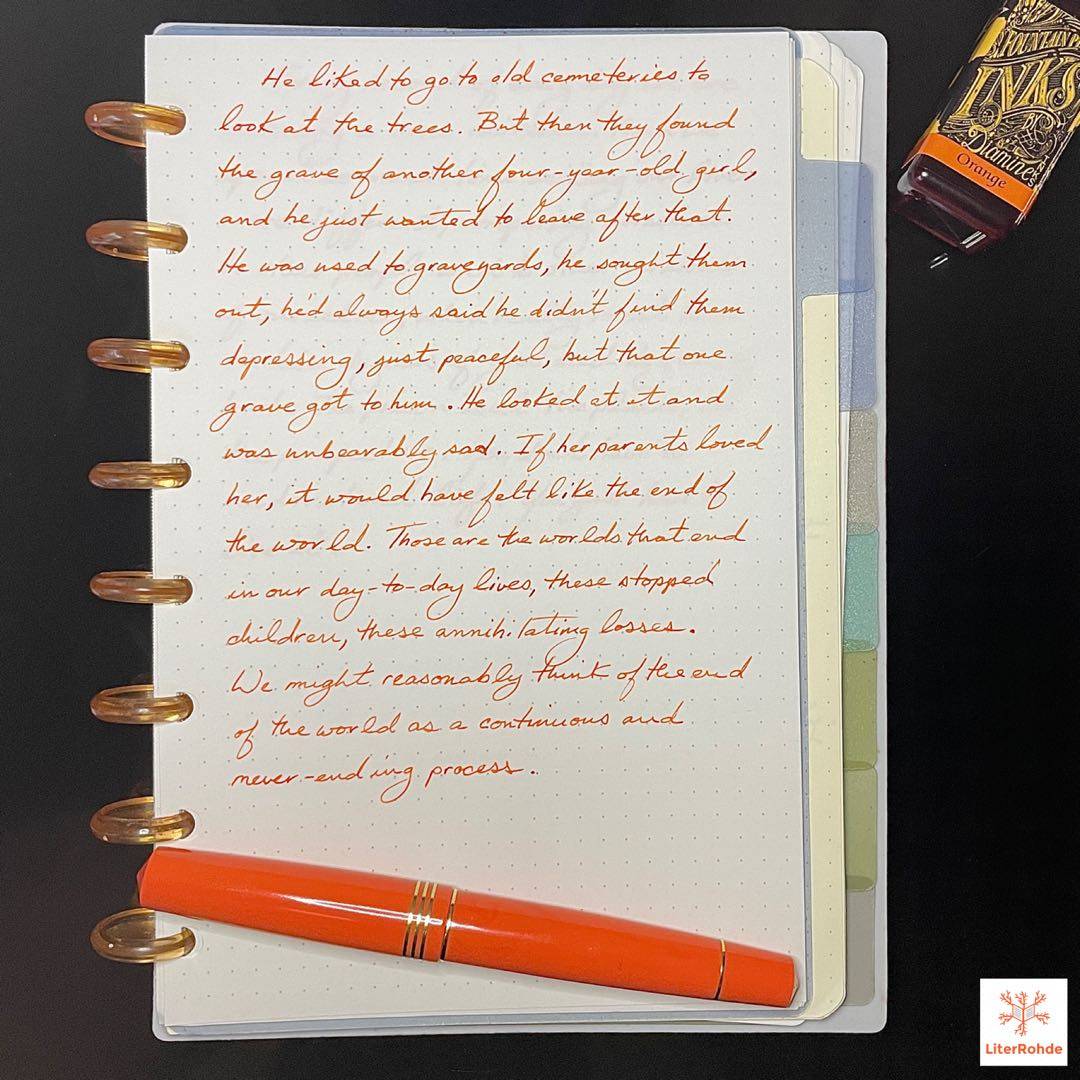 He liked to go to old cemeteries to
look at the trees. But then they found
the grave of another four-year-old girl,
and he just wanted to leave after that.
He was used to graveyards, he sought them
out, he'd always said he didn't find them
depressing, just peaceful, but that one
grave got to him. He looked at it and
was unbearably sad. If her parents loved
her, it would have felt like the end of
the world. Those are the worlds that end
in our day-to-day lives, these stopped
children, these annihilating losses.
We might reasonably think of the end
of the world as a continuous and
never-ending process.
FOUNTAIN PEN
INKS
BY
Diamine
Orange
LiterRohde